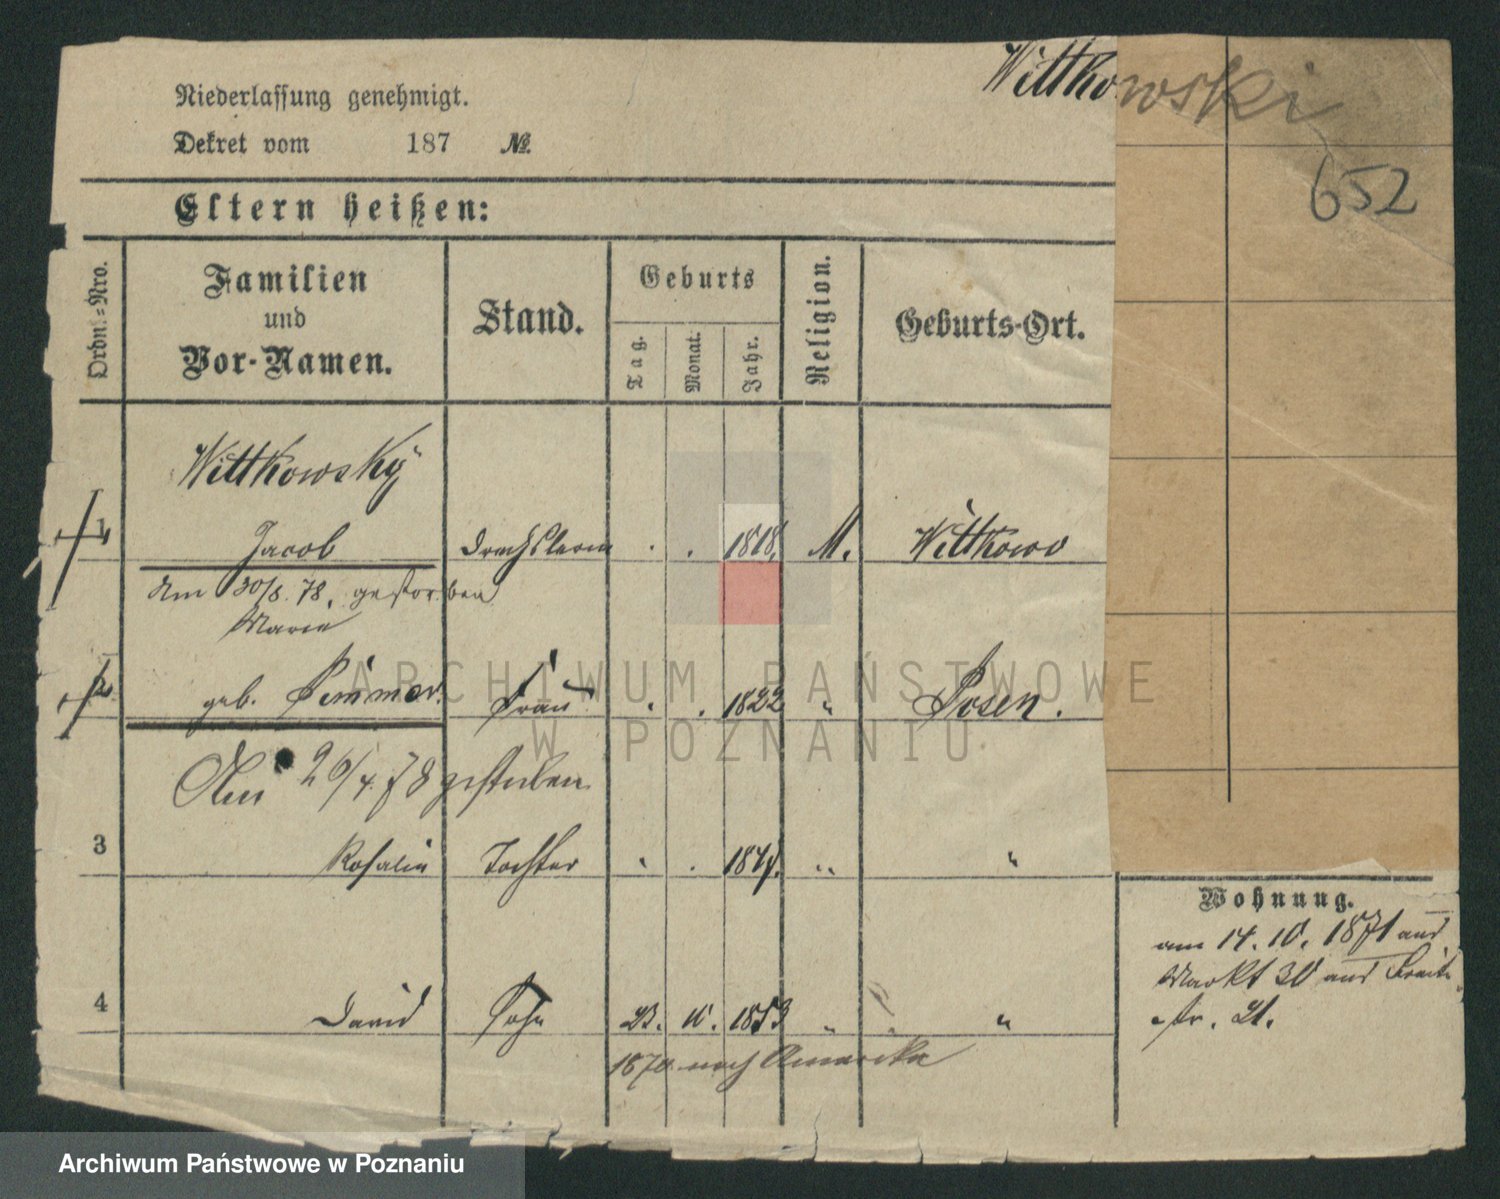 Wittkowski
652
Niederlassung genehmigt.
Dekret vom 187 №
Eltern heißen:
Ordn.-Nro. Familien und Vor-Namen. Stand. Geburts Tag. Monat. Jahr. Religion. Geburts-Ort.
Wittkowsky
1 Jacob 1818. M. Wittkowo
Am 30/8. 78. gestorben
Marie
2 geb. Frau . . 1822 " Posen.
Am 26/4. 78 gestorben
3 Rosalie Tochter " . " "
4 David Sohn 23. 10. 1853 " "
1870 nach Amerika
Wohnung.
am 14. 10. 1871 aus
Markt 30 aus Breite
str. 21.
ARCHIWUM PAŃSTWOWE
W POZNANIU
Archiwum Państwowe w Poznaniu